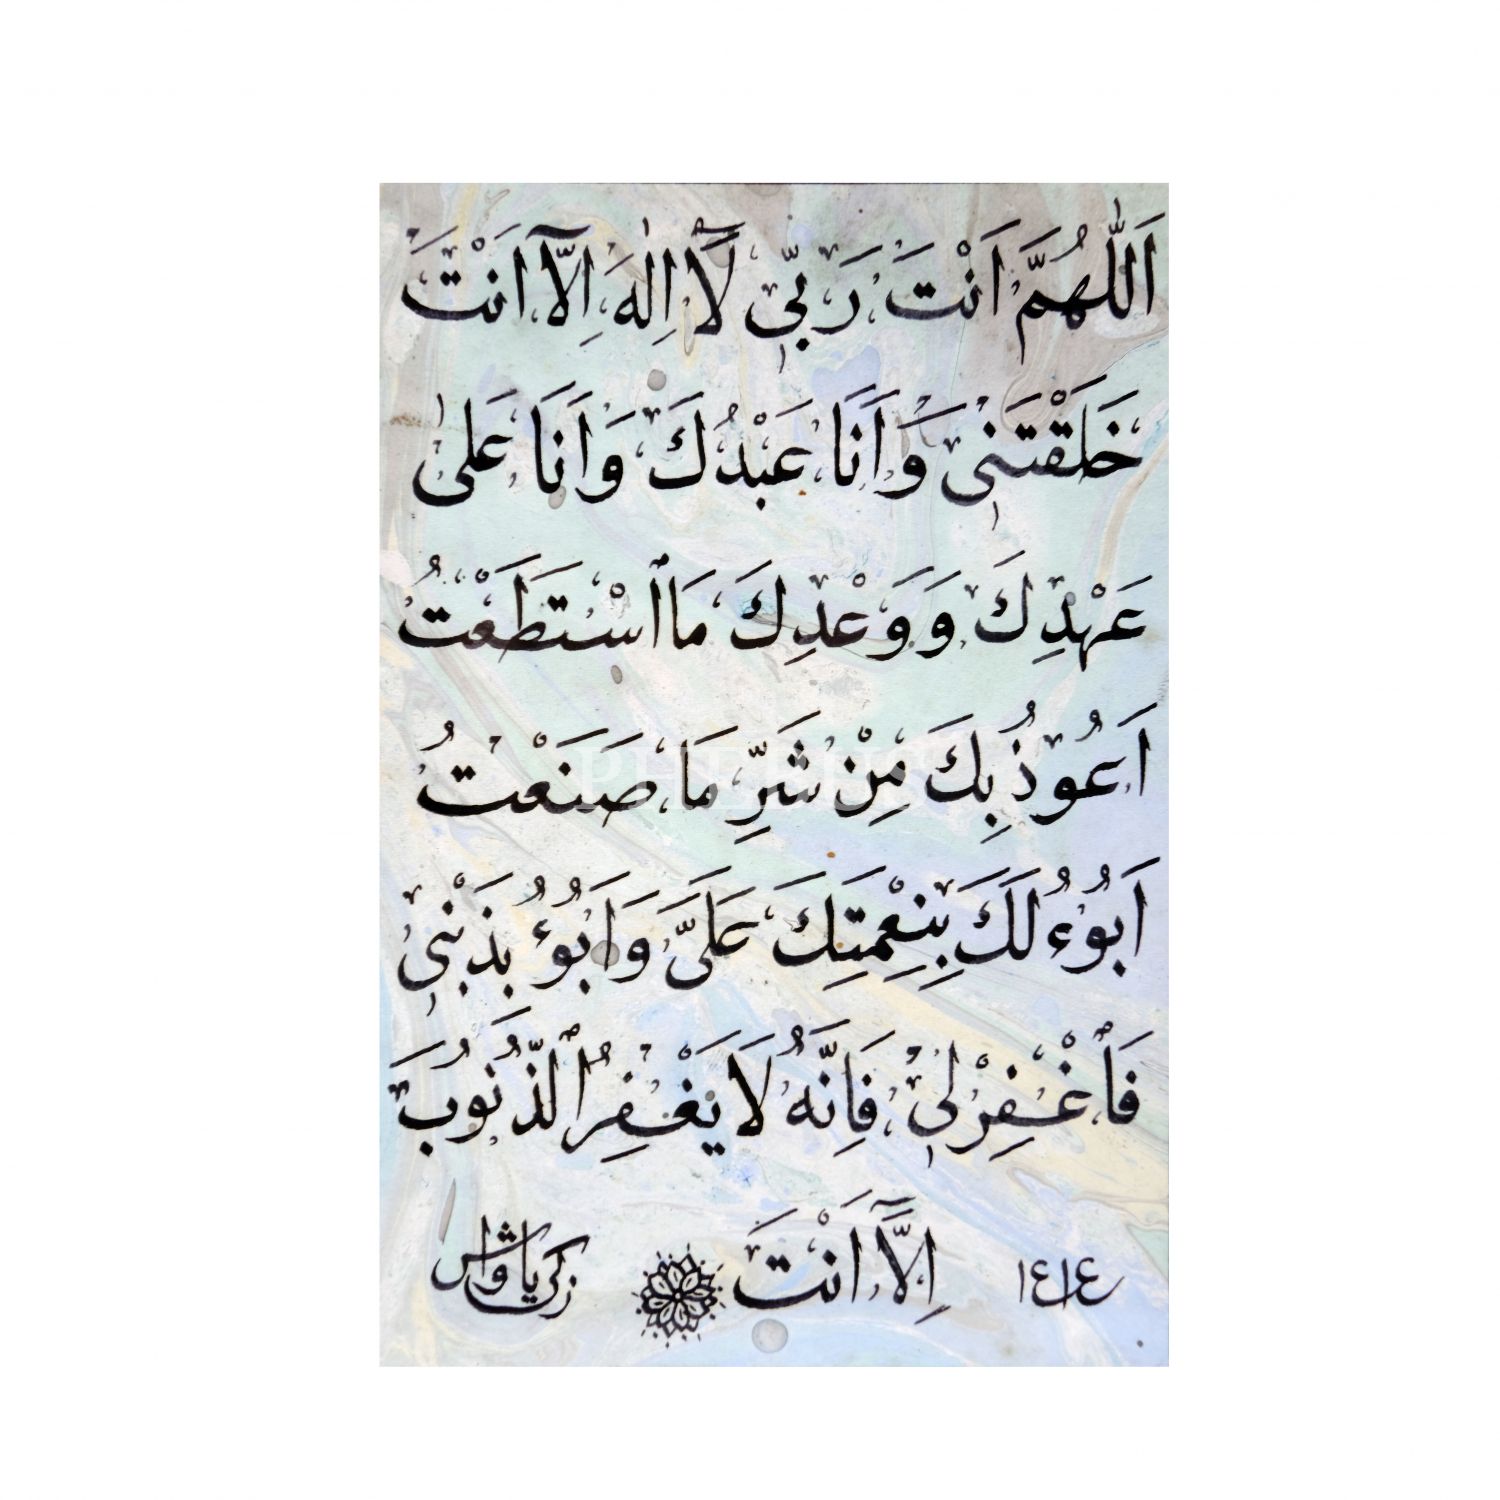 اَللّٰهُمَّ اَنْتَ رَبِّي لَٓا اِلٰهَ اِلَّٓا اَنْتَ
خَلَقْتَنِي وَاَنَا عَبْدُكَ وَاَنَا عَلٰى
عَهْدِكَ وَوَعْدِكَ مَا اسْتَطَعْتُ
اَعُوذُ بِكَ مِنْ شَرِّ مَا صَنَعْتُ
اَبُوءُ لَكَ بِنِعْمَتِكَ عَلَيَّ وَاَبُوءُ بِذَنْبِي
فَاغْفِرْلِي فَاِنَّهُ لَا يَغْفِرُ الذُّنُوبَ
اِلَّٓا اَنْتَ
١٤١٤
زكريا واش